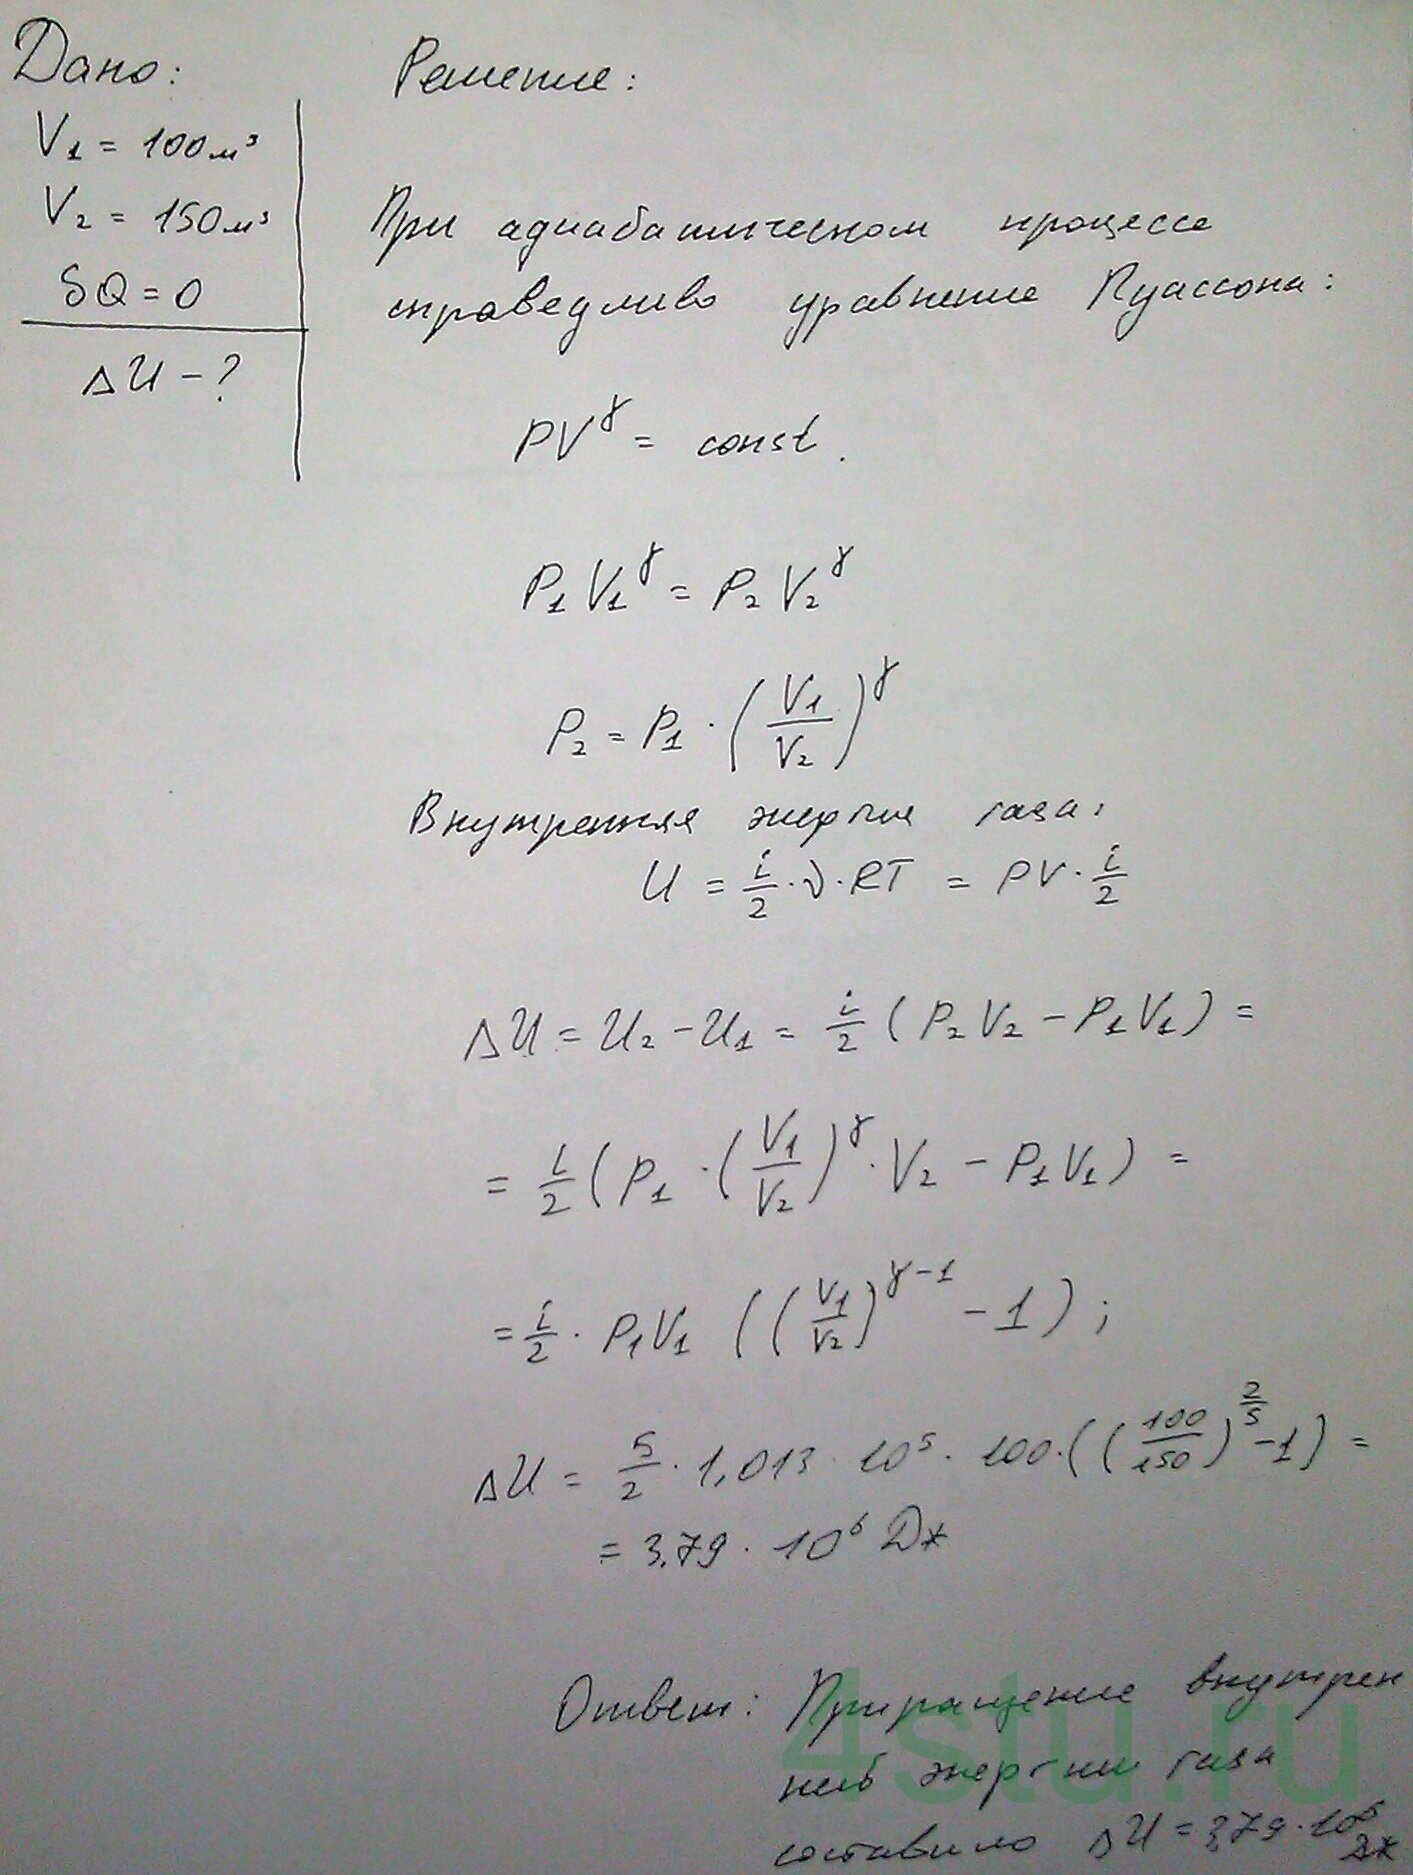 Дано:
V₁ = 100 м³
V₂ = 150 м³
δQ = 0
ΔU - ?
Решение:
При адиабатическом процессе
справедливо уравнение Пуассона:
PV^γ = const.
P₁V₁^γ = P₂V₂^γ
P₂ = P₁ · (V₁/V₂)^γ
Внутренняя энергия газа:
U = i/2 · ν · RT = PV · i/2
ΔU = U₂ - U₁ = i/2 (P₂V₂ - P₁V₁) =
= i/2 (P₁ · (V₁/V₂)^γ · V₂ - P₁V₁) =
= i/2 · P₁V₁ ((V₁/V₂)^(γ-1) - 1);
ΔU = 5/2 · 1,013 · 10⁵ · 100 · ((100/150)^(2/5) - 1) =
= 3,79 · 10⁶ Дж
Ответ: Приращение внутрен
ней энергии газа
составило ΔU = 3,79 · 10⁶ Дж
4stu.ru